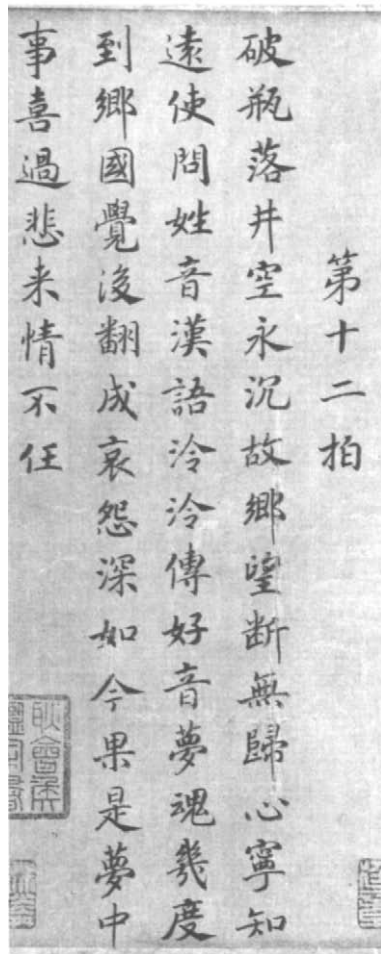 第十二拍
破瓶落井空永沉故鄉望断無歸心寧知
遠使問姓音漢語泠泠傳好音夢魂幾度
到鄉國覺後翻成哀怨深如今果是夢中
事喜過悲来情不任
耿會侯